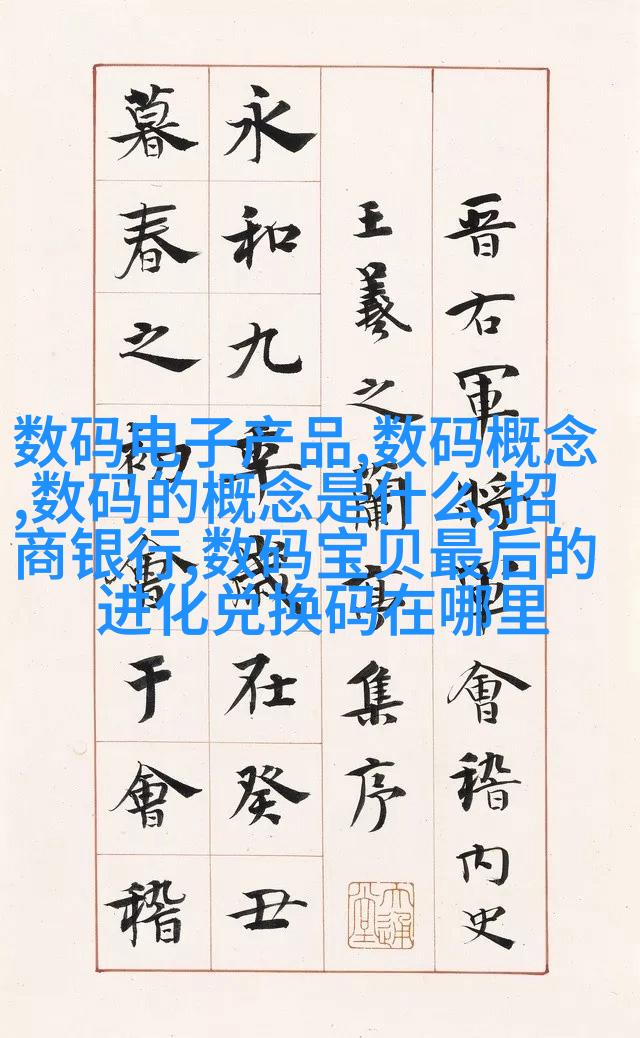 晋右軍將軍會稽内史
王羲之蘭亭集序
永和九年歲在癸丑
暮春之初會于會稽
数码电子产品,数码概念
,数码的概念是什么,招
商银行,数码宝贝最后的
进化兑换码在哪里